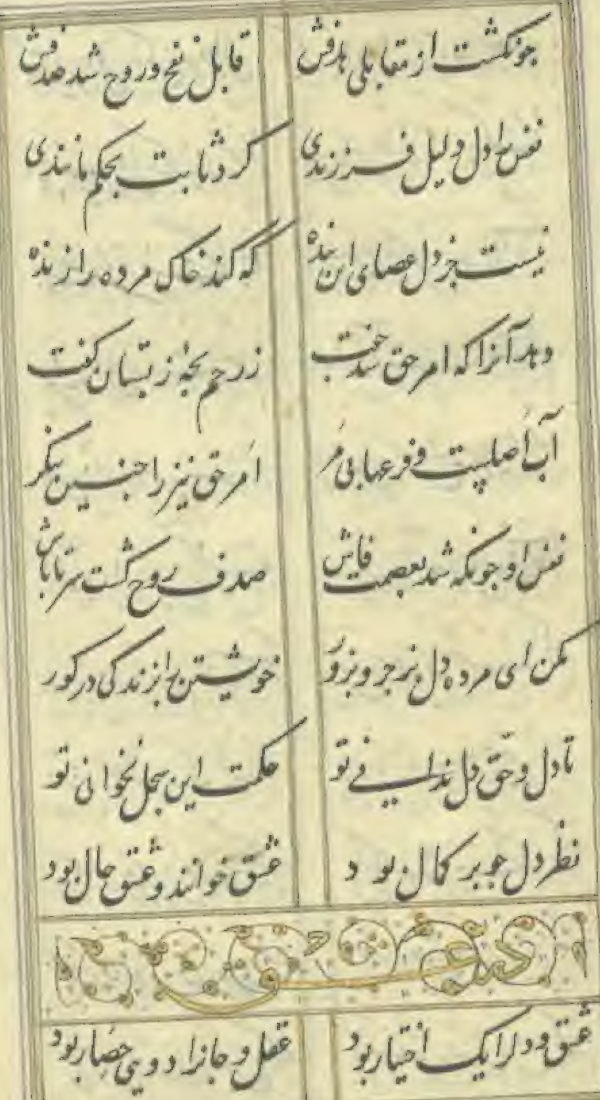 جونکشت از مقابلی هدفش قابل نفخ و روح شد صدفش
نفس اول دلیل فرزندی کرد ثابت بحکم مانندی
نیست جز دل عصای این بنده که کند خاک مرده را زنده
دهد آنرا که امر حق شد جفت ز رحم بچه ز
آب اصلیست و فرعها بی مر امر حق نیز را جنین بنکر
نفس او جونکه شد بعصمت فاش صدف روح کشت سر تا پاش
مکن ای مرده دل بزجر و بزور خویشتن را بزندکی در کور
تا دل و حق دل ندانی تو حکمت این سجل نخوانی تو
نظر دل جو بر کمال بود عشق خوانند و عشق حال بود
عشق و دلرا یک اختیار بود عقل و جانرا دویی حصار بود